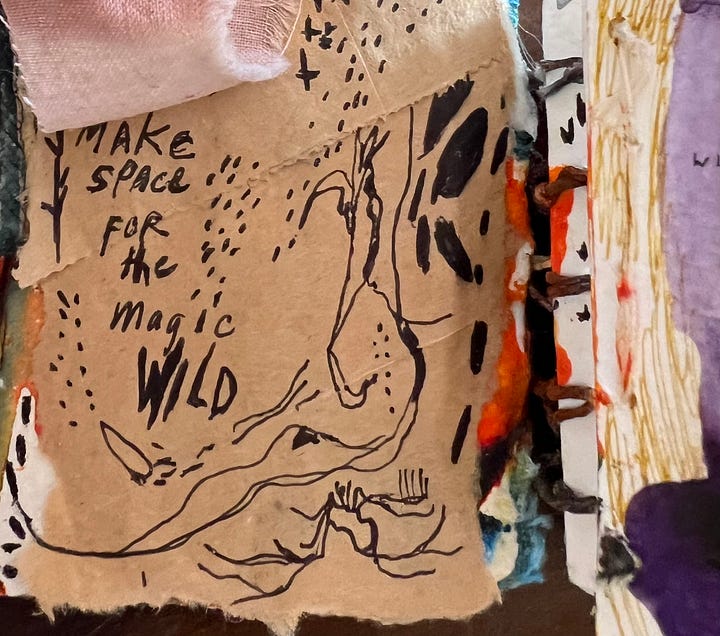 MAKE
SPACE
FOR
the
magic
WILD